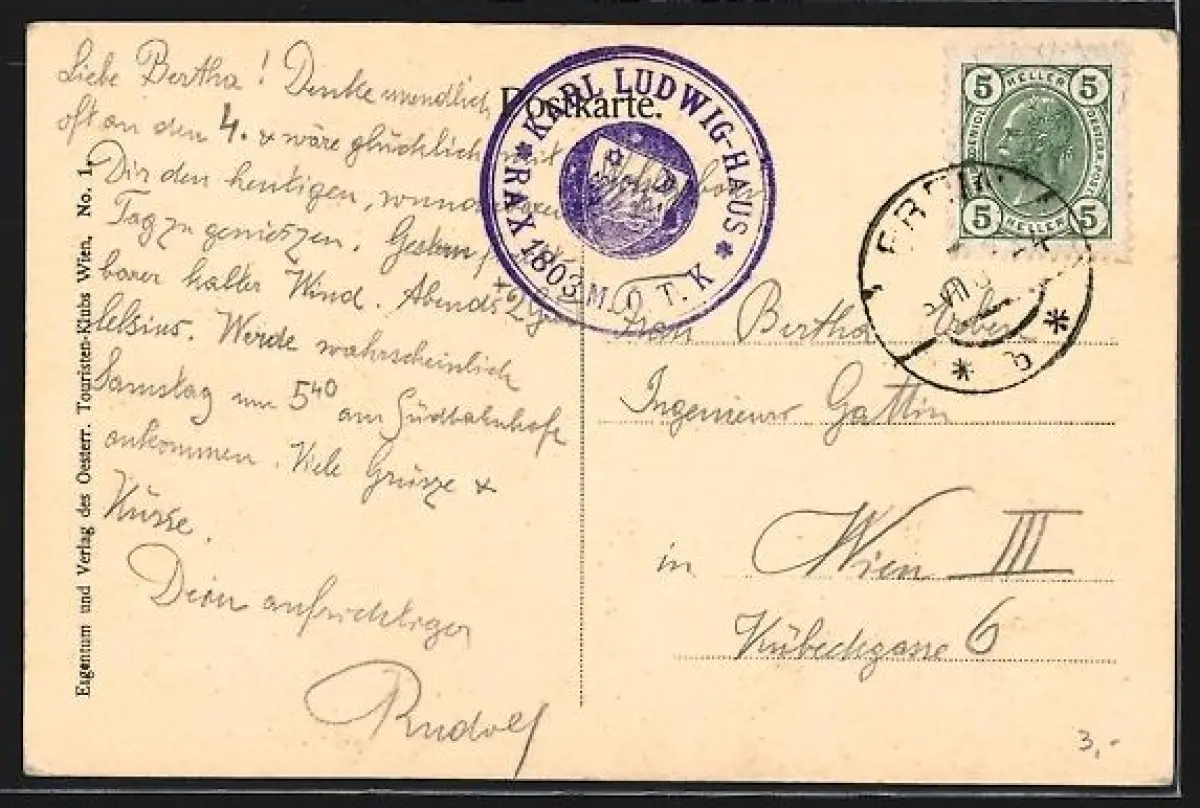 Postkarte.
KARL LUDWIG-HAUS
RAX 1803 M. Ö. T. K
5 HELLER 5
5 HELLER 5
Liebe Bertha! Denke unendlich
oft an den 4. & wäre glücklich mit
Dir den heutigen,
Tag zu genieszen. Gestern
barer kalter Wind. Abends + 2
Celsius. Werde wahrscheinlich
Samstag um 5 40 am Südbahnhofe
ankommen. Viele Grüsze &
Küsse.
Dein aufrichtiger
Rudolf
Frau Bertha
Ingenieurs Gattin
in Wien III
Kübeckgasse 6
Eigentum und Verlag des Oesterr. Touristen-Klubs Wien, No. 1.
3,-